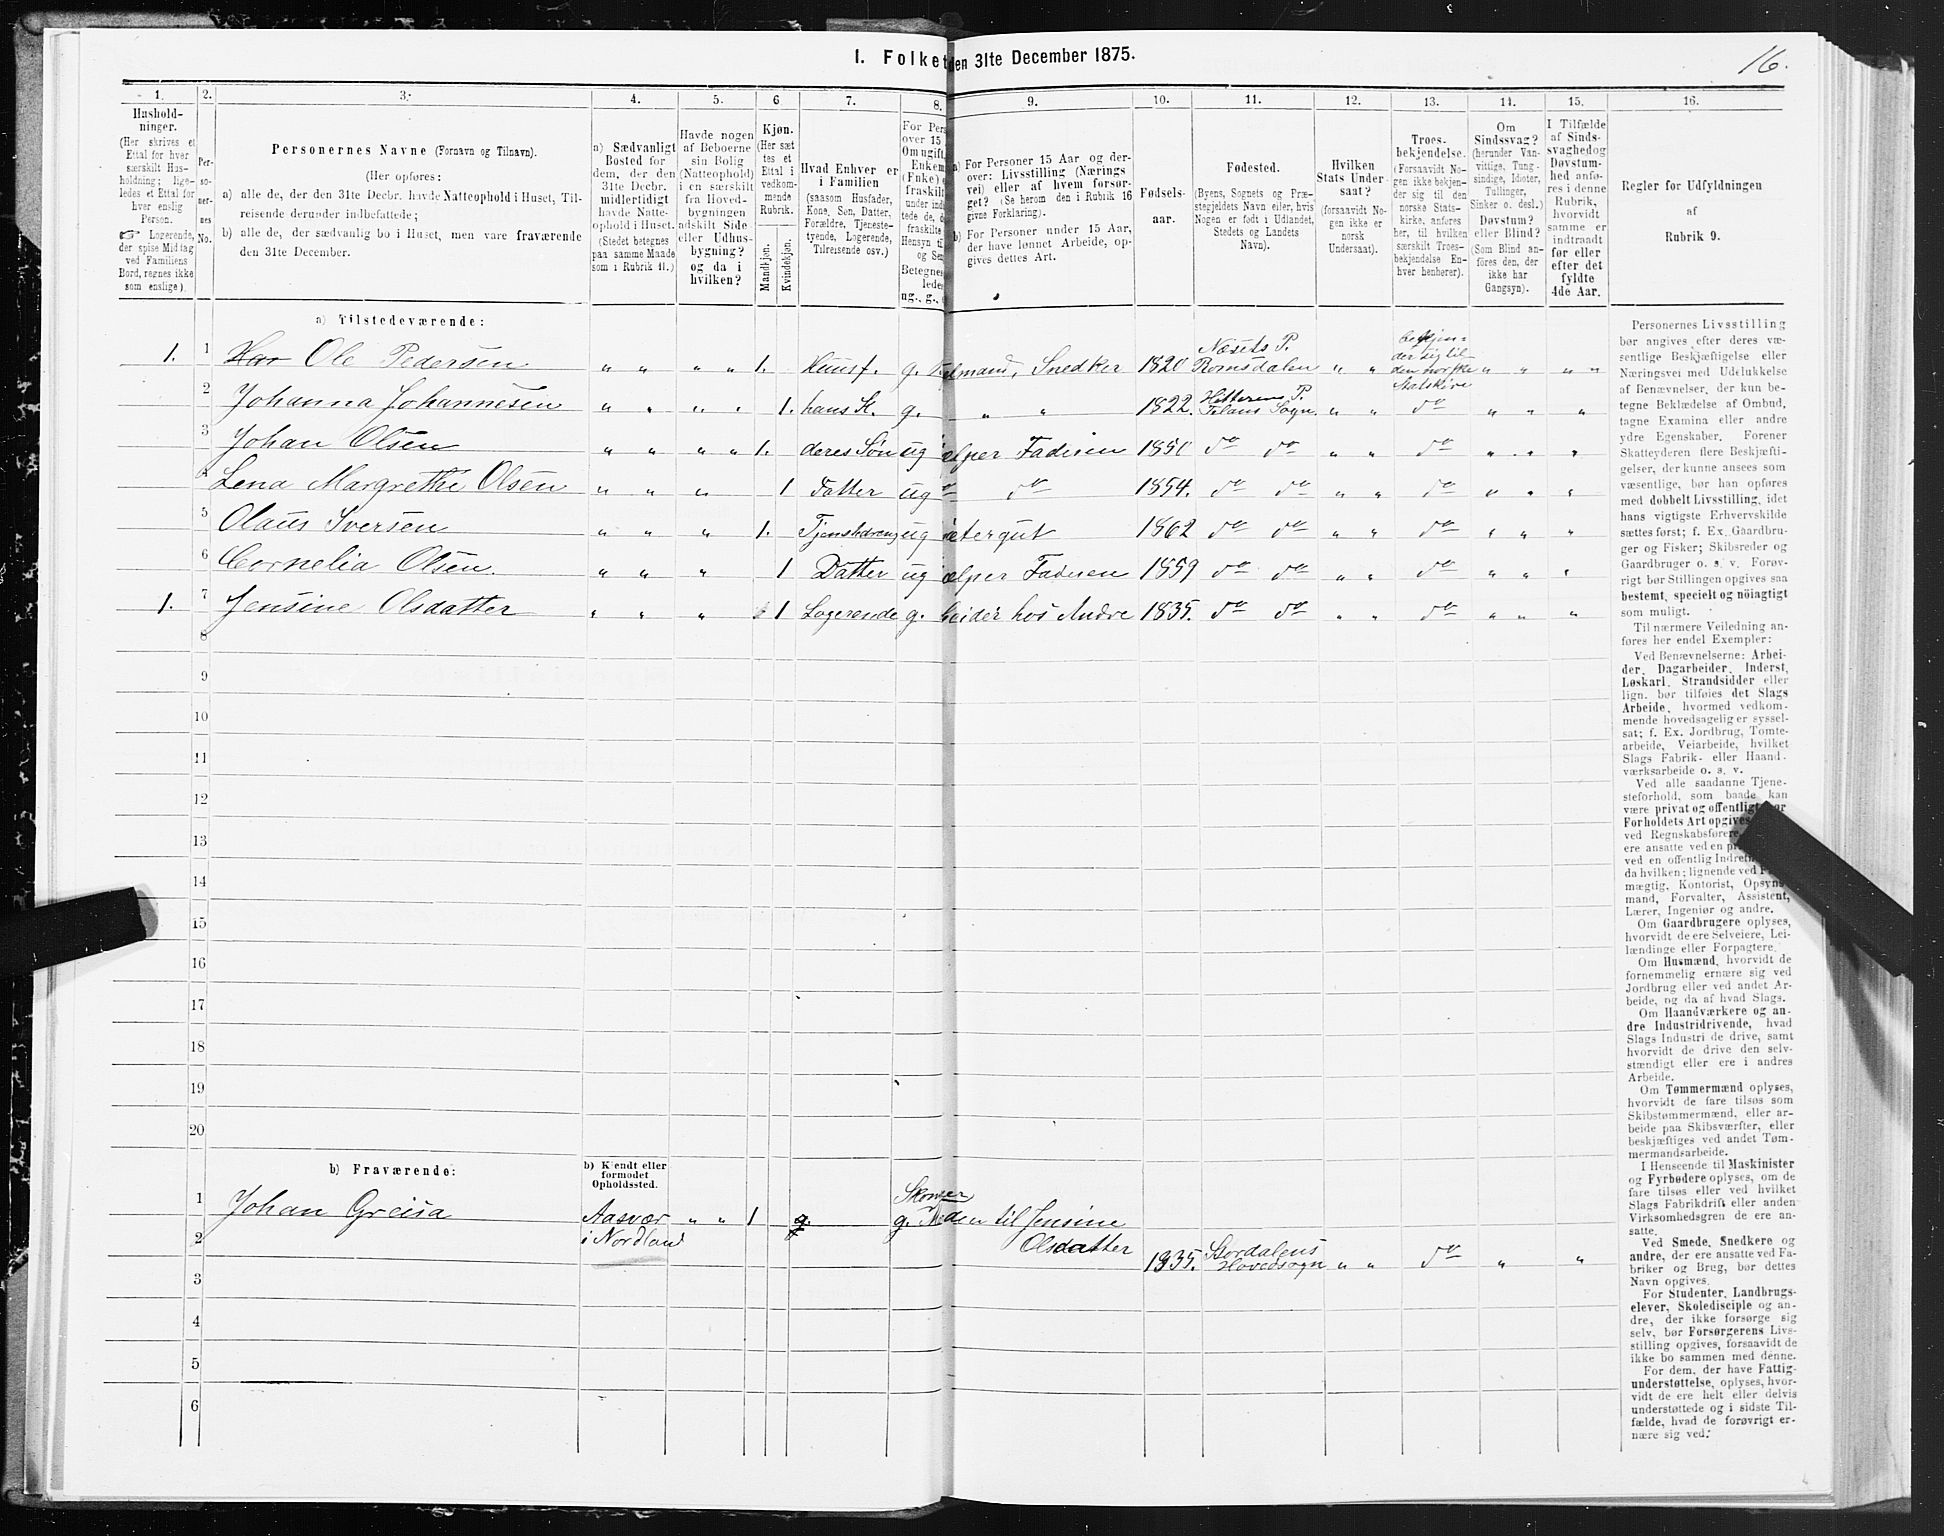 I. Folket den 31te December 1875.
16.
1.
2.
3.
4.
5.
6
7.
8.
9.
10.
11.
12.
13.
14.
15.
16.
Hushold-
ninger.
(Her skrives et
Ettal for hver
særskilt Hus-
holdning; lige-
ledes et Ettal for
hver enslig
Person.
☞ Logerende,
der spise Middag
ved Familiens
Bord, regnes ikke
som enslige).
Per-
so-
ner-
nes
No.
Personernes Navne (Fornavn og Tilnavn).
(Her opføres:
a) alle de, der den 31te Decbr. havde Natteophold i Huset, Til-
reisende derunder indbefattede;
b) alle de, der sædvanlig bo i Huset, men vare fraværende
den 31te December.
a) Sædvanligt
Bosted for
dem, der den
31te Decbr.
midlertidigt
havde Natte-
ophold i Huset.
(Stedet betegnes
paa samme Maade
som i Rubrik 11.)
Havde nogen
af Beboerne
sin Bolig
(Natteophold)
i en særskilt
fra Hoved-
bygningen
adskilt Side-
eller Udhus-
bygning?
og da i
hvilken?
Kjøn.
(Her sæt
tes et
Ettal i
vedkom-
mende
Rubrik.
Mandkjøn.
Kvindekjøn.
Hvad Enhver er
i Familien
(saasom Husfader,
Kone, Søn, Datter,
Forældre, Tjeneste-
tyende, Logerende,
Tilreisende osv.)
For Pers
over 15
Om ugift,
Enkem
(Enke) e
fraskilt
Betegnes
ledes
ug., g.,
a) For Personer 15 Aar og der-
over: Livsstilling (Nærings
vei) eller af hvem forsør-
get? (Se herom den i Rubrik 16
givne Forklaring).
b) For Personer under 15 Aar,
der have lønnet Arbeide, op-
gives dettes Art.
Fødsels-
aar.
Fødested.
(Byens, Sognets og Præ-
stegjeldets Navn eller, hvis
Nogen er født i Udlandet,
Stedets og Landets
Navn).
Hvilken
Stats Under-
saat?
(forsaavidt No-
gen ikke er
norsk
Undersaat).
Troes-
bekjendelse.
(Forsaavidt No-
gen ikke bekjen-
der sig til den
norske Stats-
kirke, anføres
her, til hvilken
særskilt Troes-
bekjendelse En-
hver henhører).
Om
Sindssvag?
(herunder Van-
vittige, Tung-
sindige, Idioter,
Tullinger,
Sinker o. desl.)
Døvstum?
eller Blind?
(Som Blind an-
føres den, der
ikke har
Gangsyn).
I Tilfælde
af Sinds-
svaghed og
Døvstum-
hed anfø-
res i denne
Rubrik,
hvorvidt
samme er
indtraadt
før eller
efter det
fyldte
4de Aar.
Regler for Udfyldningen
af
Rubrik 9.
a) Tilstedeværende:
1. 1 Ole Pedersen " " " " 1. Huusf. g. Snedker 1820 Næsets P. Romsdalen " " bekjen-der sig til den norske Statskirke " " " "
2 Johanna Johannesen " " " " 1. hans K. g. " " 1822. Hitterens P. Filans Sogn. " " do " " "
3 Johan Olsen " " " " 1. deres Søn ug ælper Faderen 1850 do do " " do " " "
4 Lena Margrethe Olsen " " " 1 Datter ug do 1854. do do " " do " " "
5 Olaus Iversen " " " 1. Tjenstdreng ug jætergut 1862 do do " " do " " "
6 Cornelia Olsen. " " " 1 Datter ug ælper Faderen 1859 do do " " do " " "
1. 7 Jensine Olsdatter " " " 1 Logerende g. beider hos Andre 1835. do do " " do " " "
8
9
10
11
12
13
14
15
16
17
18
19
20
b) Fraværende:
b) Kjendt eller
formodet
Opholdssted.
1 Johan Greisa Aasvær " " 1 g. g. Skomager Manden til Jensine
2 i Nordland Olsdatter 1835. Stordalens Hovedsogn " " do " "
3
4
5
6
Personernes Livsstilling
bør angives efter deres væ-
sentlige Beskjæftigelse eller
Næringsvei med Udelukkelse
af Benævnelser, der kun be-
tegne Beklædelse af Ombud,
tagne Examina eller andre
ydre Egenskaber. Forener
Skatteyderen flere Beskjæfti-
gelser, der kunne ansees som
væsentlige, bør han opføres
med dobbelt Livsstilling, idet
hans vigtigste Erhvervskilde
sættes først; f. Ex. Gaardbru-
ger og Fisker; Skibsreder og
Gaardbruger o. s. v. Forøv-
rigt bør Stillingen opgives saa
bestemt, specielt og nöiagtigt
som muligt.
Til nærmere Veiledning an-
føres her endel Exempler:
Ved Benævnelserne: Arbei-
der, Dagarbeider, Inderst,
Løskarl, Strandsidder eller
lign. bør tilføies det Slags
Arbeide, hvormed vedkom-
mende hovedsagelig er syssel-
sat; f. Ex. Jordbrug, Tomte-
arbeide, Veiarbeide, hvilket
Slags Fabrik- eller Haand-
værksarbeide o. s. v.
Ved alle saadanne Tjene-
steforhold, som baade kan
være privat og offentligt, bør
Forholdets Art opgives,
ved Regnskabsførere,
ere ansatte ved en pr
ved en offentlig Indretn
da hvilken; lignende ved F
mægtig, Kontorist, Opsyns-
mand, Forvalter, Assistent,
Lærer, Ingeniør og andre.
Om Gaardbrugere oplyses,
hvorvidt de ere Selveiere, Lei-
lændinge eller Forpagtere.
Om Husmænd, hvorvidt de
fornemmelig ernære sig ved
Jordbrug eller ved andet Ar-
beide, og da af hvad Slags.
Om Haandværkere og an-
dre Industridrivende, hvad
Slags Industri de drive, samt
hvorvidt de drive den selv-
stændigt eller ere i andres
Arbeide.
Om Tømmermænd oplyses,
hvorvidt de fare tilsøs som
Skibstømmermænd, eller ar-
beide paa Skibsværfter, eller
beskjæftiges ved andet Tøm-
mermandsarbeide.
I Henseende til Maskinister
og Fyrbødere oplyses, om de
fare tilsøs eller ved hvilket
Slags Fabrikdrift eller anden
Virksomhedsgren de ere an-
satte.
Ved Smede, Snedkere og
andre, der ere ansatte ved Fa-
briker og Brug, bør dettes
Navn opgives.
For Studenter, Landbrugs-
elever, Skoledisciple og an-
dre, der ikke forsørge sig
selv, bør Forsørgerens Livs-
stilling opgives, forsaavidt de
ikke bo sammen med denne.
For dem, der have Fattig-
understøttelse, oplyses, hvor-
vidt de ere helt eller delvis
understøttede og i sidste Til-
fælde, hvad de forøvrigt er-
nære sig ved.